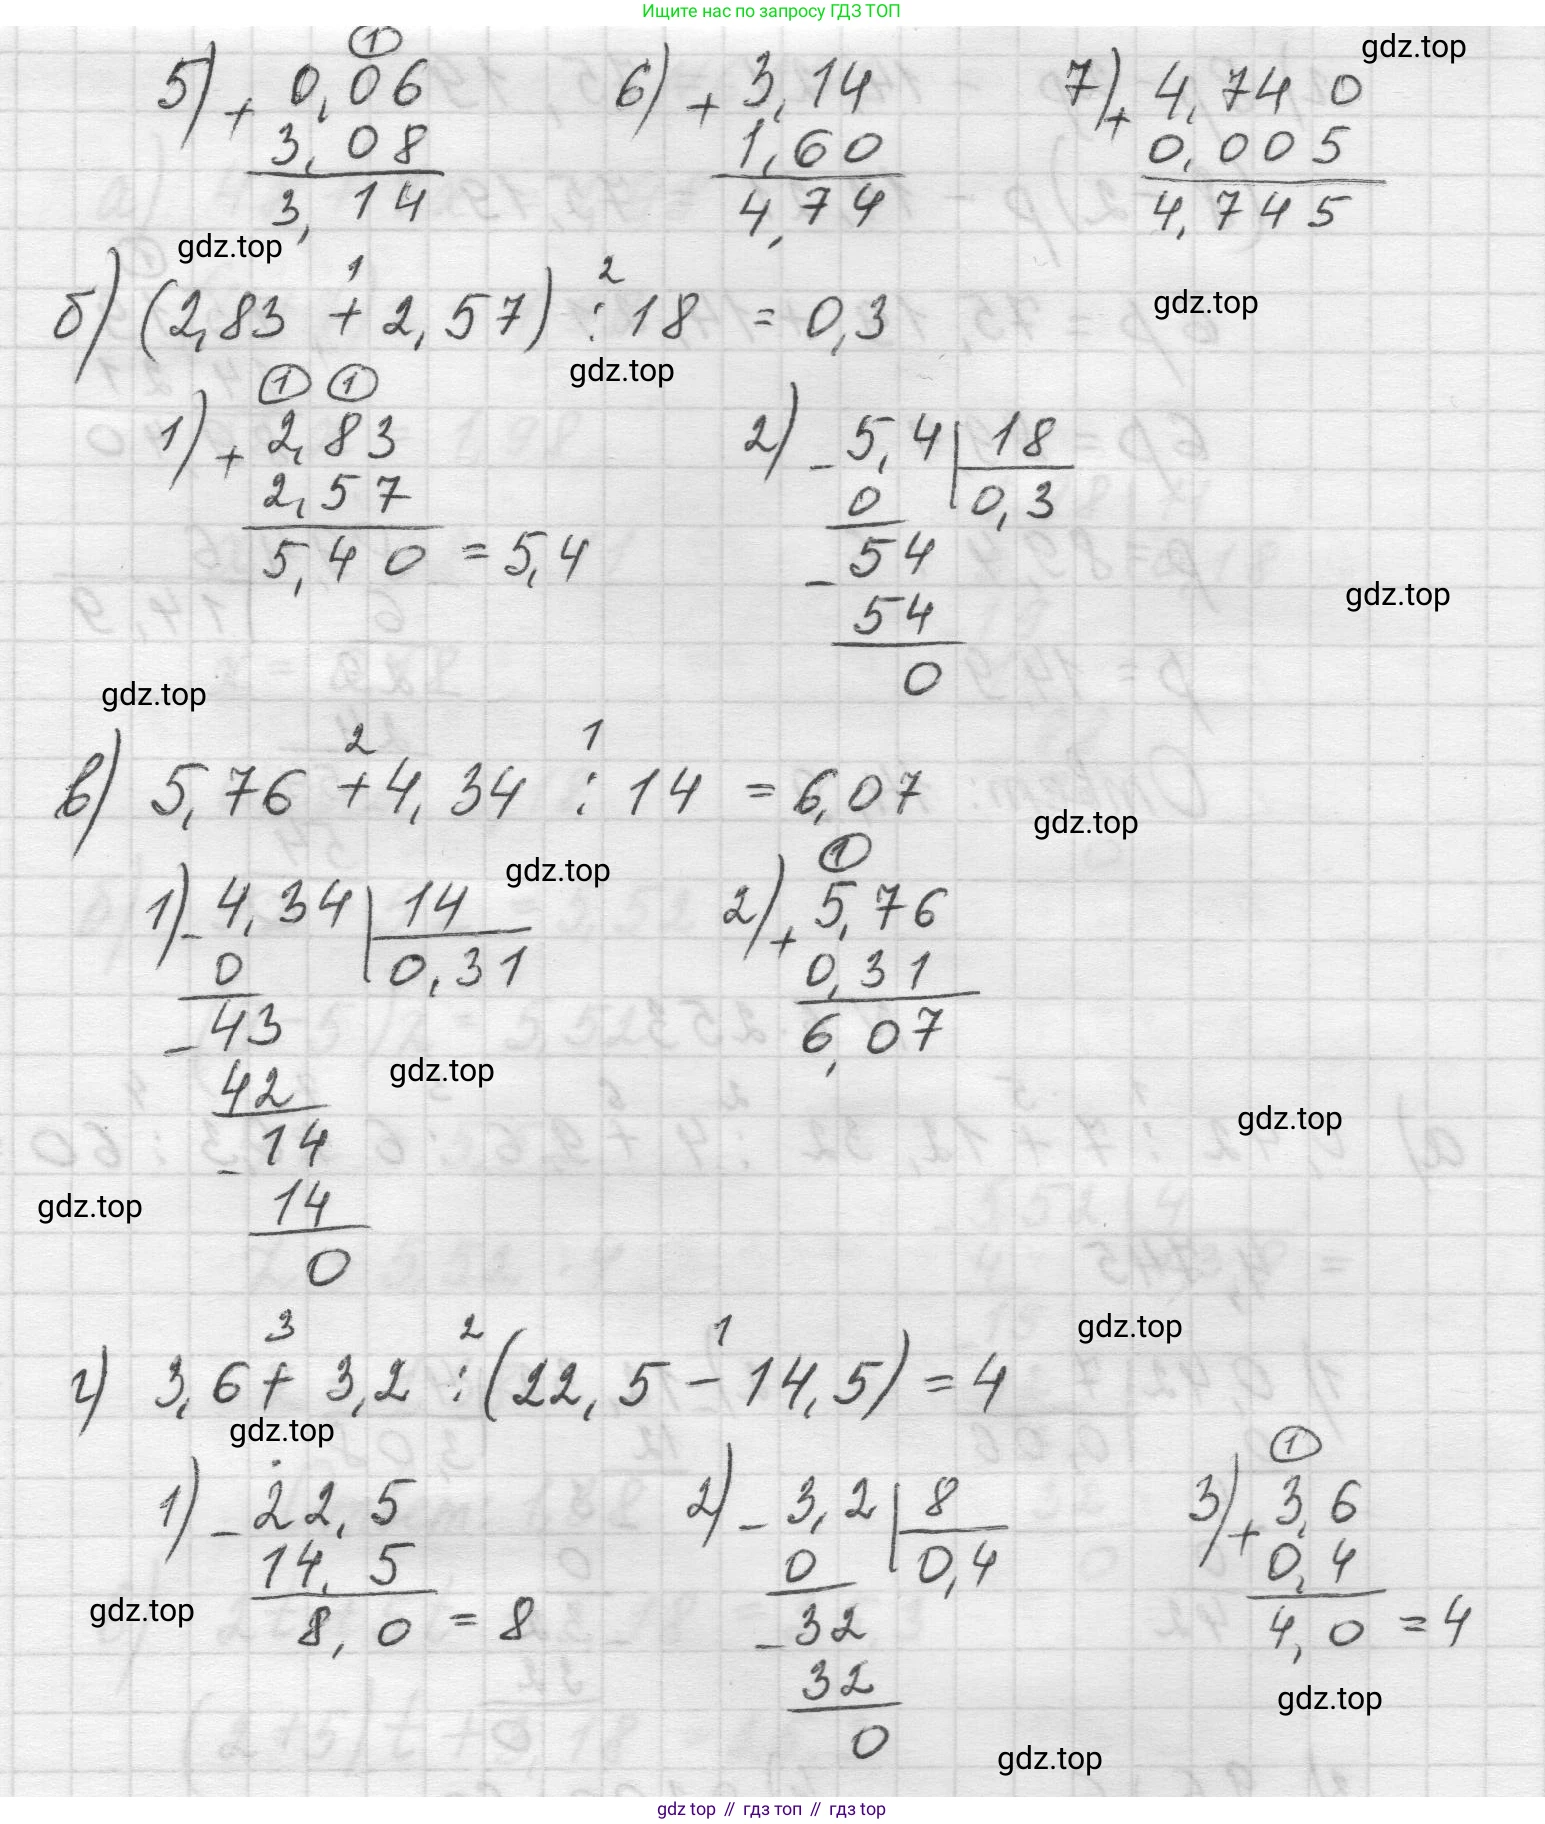 Ищите нас по запросу ГДЗ ТОП
gdz.top
5) + 0,06 (1)
3,08
3,14
6) + 3,14
1,60
4,74
7) + 4,740
0,005
4,745
gdz.top
б) (2,83 + 2,57) : 18 = 0,3
1 2
gdz.top
gdz.top
1) + 2,83 (1) (1)
2,57
5,40 = 5,4
2) - 5,4 | 18
0 | 0,3
- 54
54
0
gdz.top
gdz.top
в) 5,76 + 4,34 : 14 = 6,07
2 1
gdz.top
gdz.top
1) - 4,34 | 14
0 | 0,31
- 43
42
- 14
14
0
2) + 5,76 (1)
0,31
6,07
gdz.top
gdz.top
gdz.top
gdz.top
г) 3,6 + 3,2 : (22,5 - 14,5) = 4
3 2 1
gdz.top
1) - 22,5
14,5
8,0 = 8
2) - 3,2 | 8
0 | 0,4
- 32
32
0
3) + 3,6 (1)
0,4
4,0 = 4
gdz.top
gdz.top
gdz.top
gdz top // гдз топ // gdz top